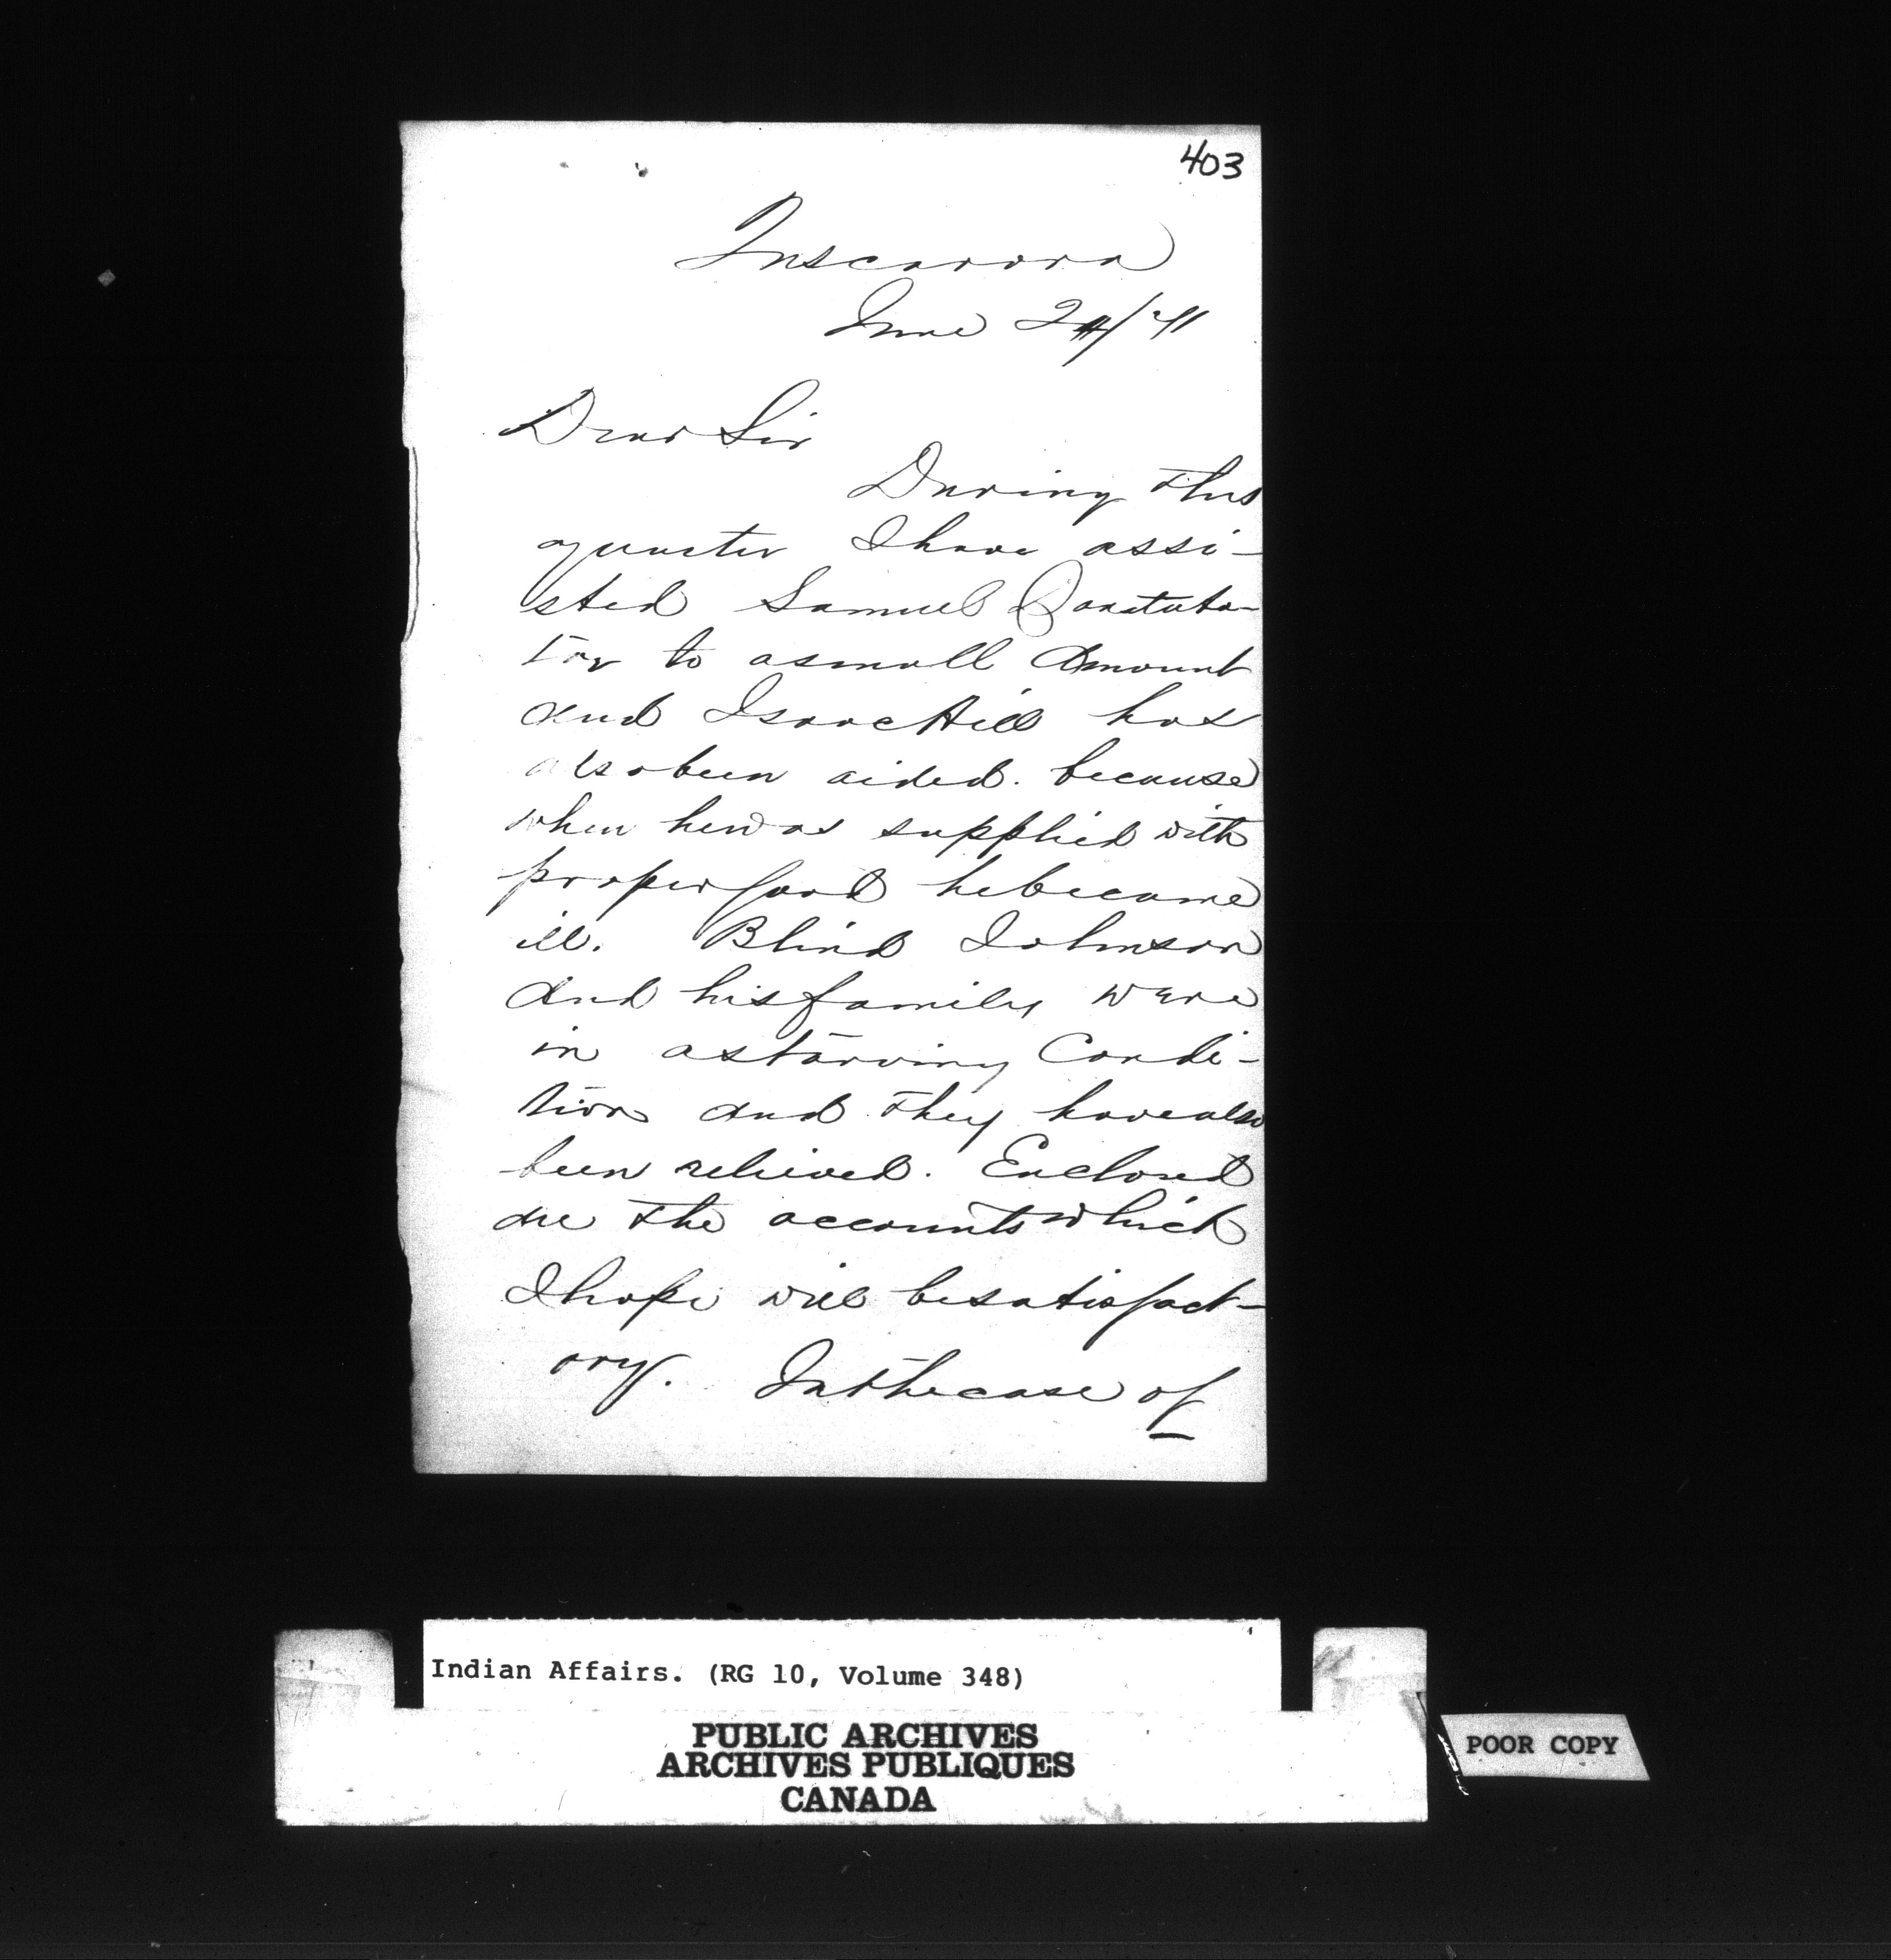 403
Tuscarora
June 24/71
Dear Sir
During this
quarter I have assi-
sted Samuel
to a small amount
and Isaac Hill has
also been aided. because
when he was supplied with
proper food he became
ill. Blind Johnson
and his family were
in a starving Condi-
tion and they have also
been relieved. Enclosed
are the accounts which
I hope will be satisfact-
ory. In the case of
Indian Affairs. (RG 10, Volume 348)
PUBLIC ARCHIVES
ARCHIVES PUBLIQUES
CANADA
POOR COPY